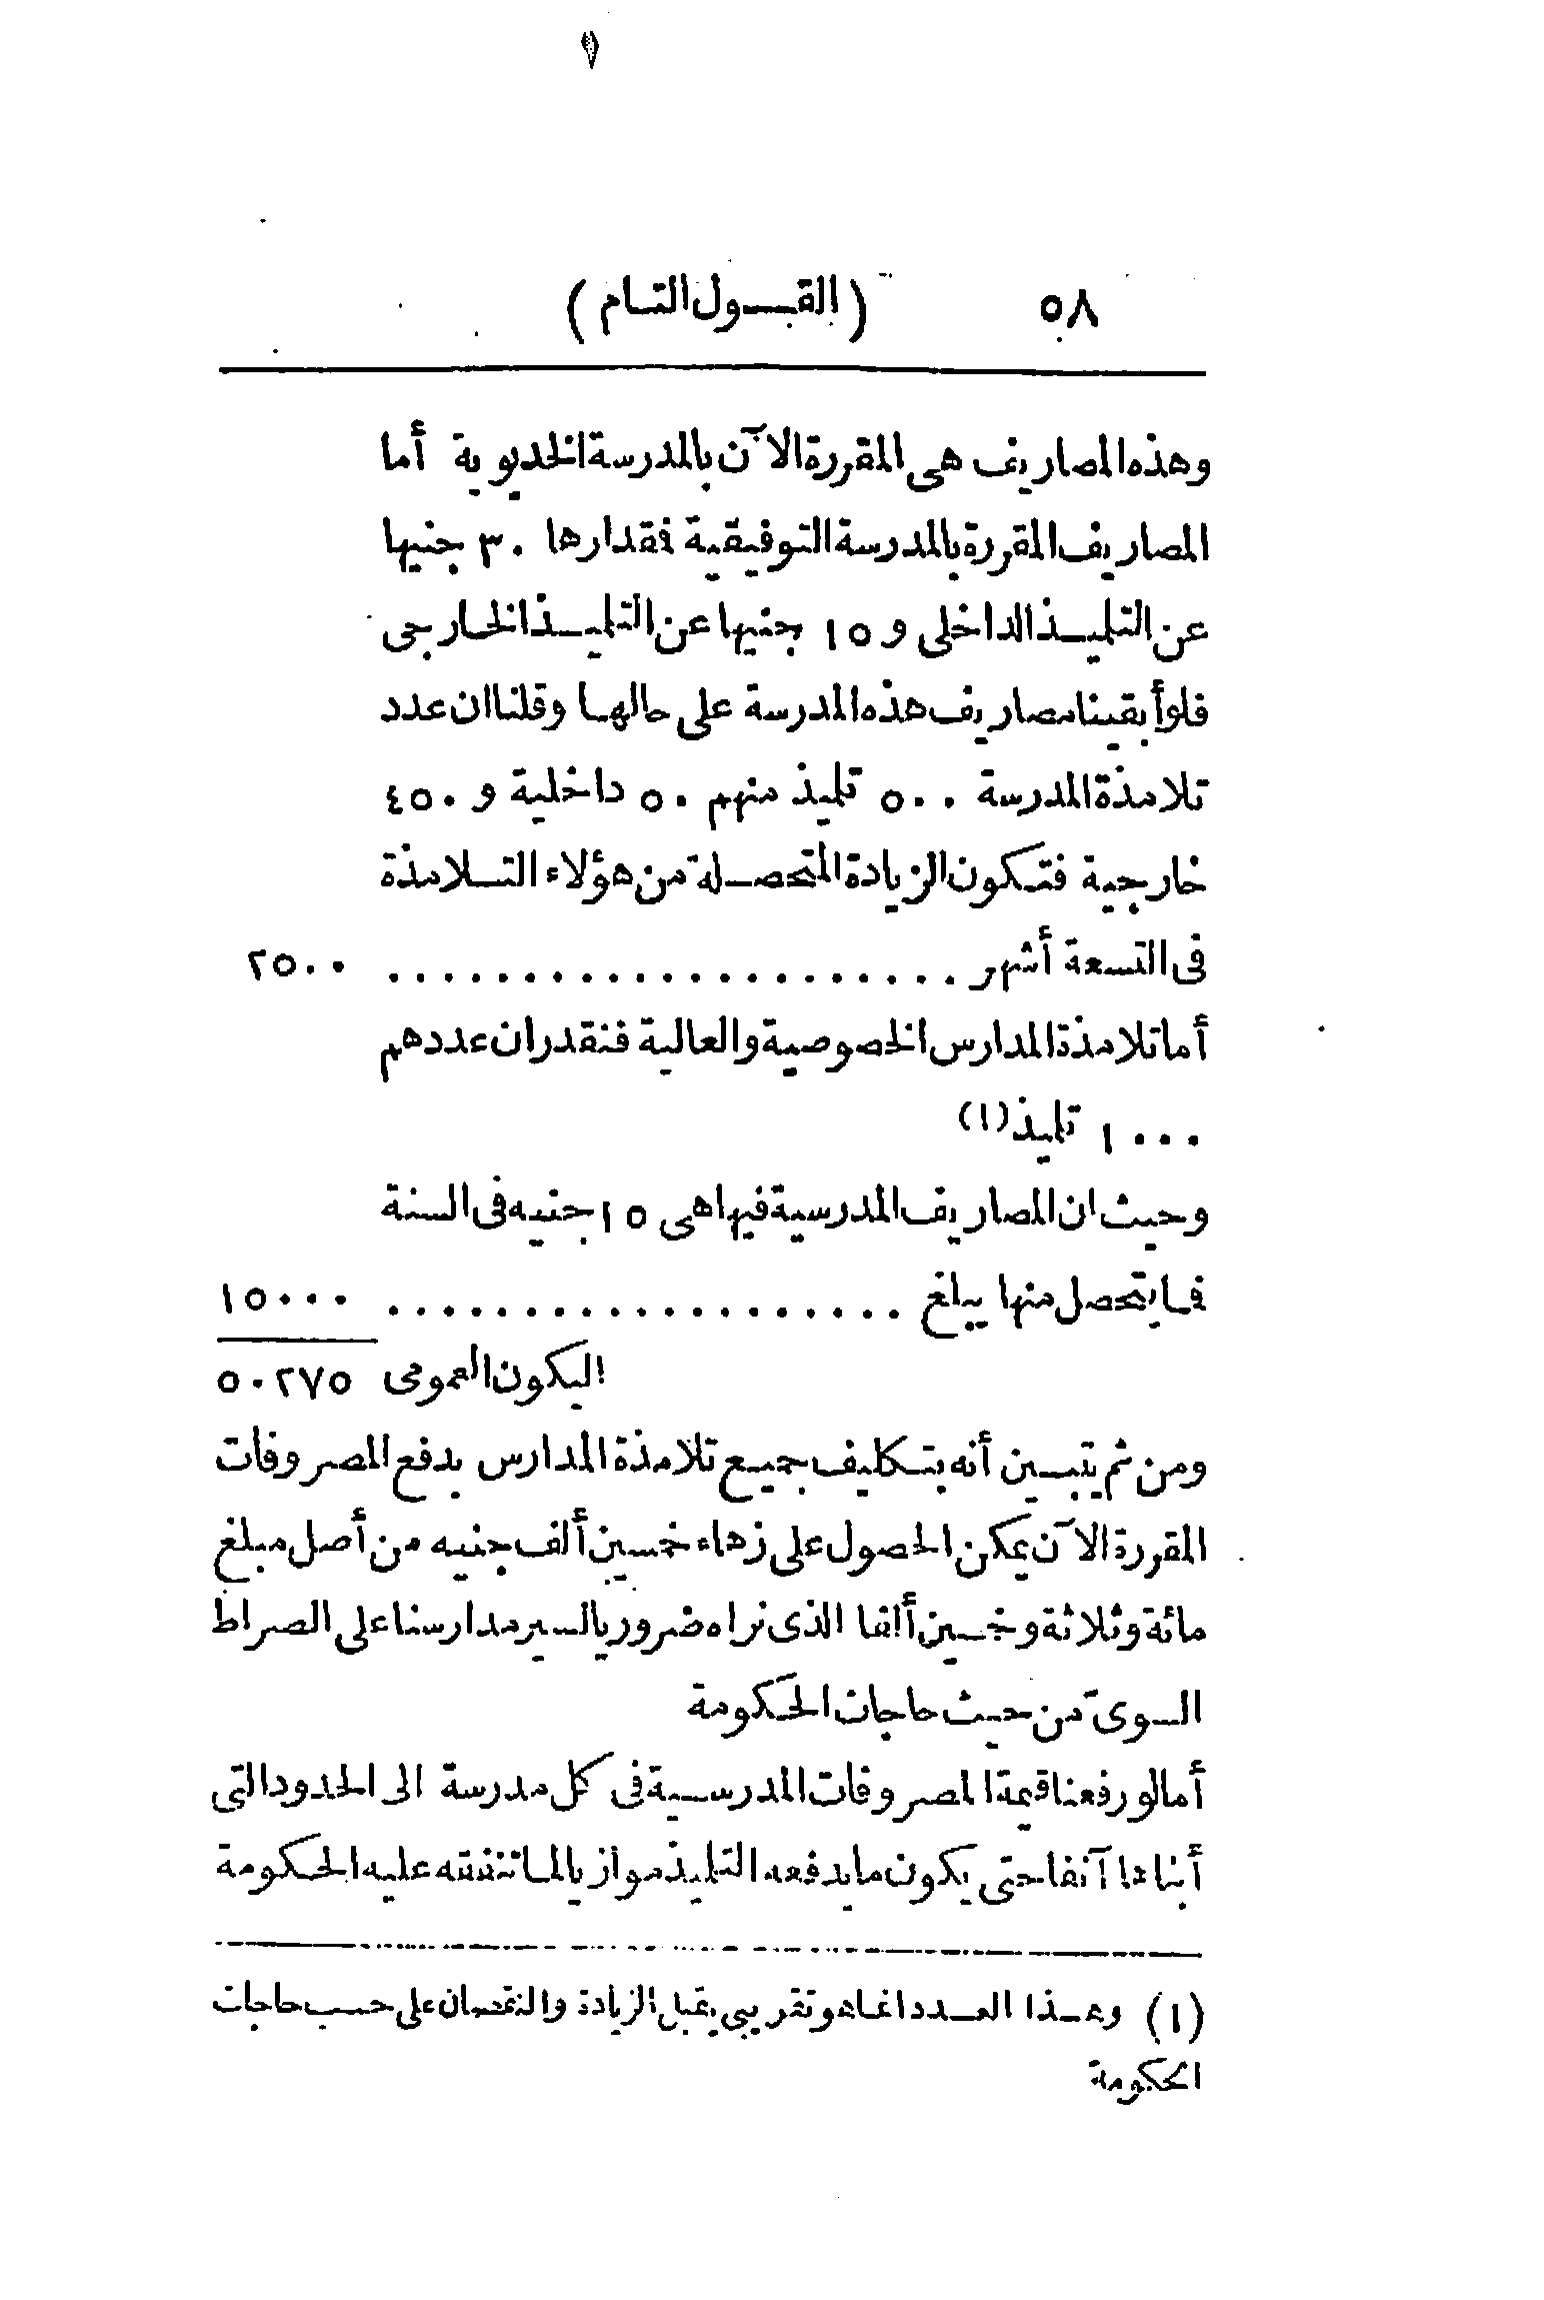 ٥٨ (القول التام)
وهذه المصاريف هى المقررة الآن بالمدرسة الخديوية أما
المصاريف المقررة بالمدرسة التوفيقية فمقدارها ٣٠ جنيها
عن التلميذ الداخلى و ١٥ جنيها عن التلميذ الخارجى
فلو أبقينا مصاريف هذه المدرسة على حالها وقلنا ان عدد
تلامذة المدرسة ٥٠٠ تلميذ منهم ٥٠ داخلية و ٤٥٠
خارجية فتكون الزيادة المتحصلة من هؤلاء التلامذة
فى التسعة أشهر ..................... ٢٥٠٠
أما تلامذة المدارس الخصوصية والعالية فنقدر ان عددهم
١٠٠٠ تلميذ (١)
وحيث ان المصاريف المدرسية فيها هى ١٥ جنيه فى السنة
فما يتحصل منها يبلغ ................... ١٥٠٠٠
اليكون العمومى ٥٠٢٧٥
ومن ثم يتبين أنه بتكليف جميع تلامذة المدارس بدفع المصروفات
المقررة الآن يمكن الحصول على زهاء خمسين ألف جنيه من أصل مبلغ
مائة وثلاثة وخمسين ألفا الذى نراه ضروريا لسير مدارسنا على الصراط
السوى من حيث حاجات الحكومة
أما لو رفعنا قيمة المصروفات المدرسية فى كل مدرسة الى الحدود التى
أبناها آنفا حتى يكون ما يدفعه التلميذ موازيا لما تنفقه عليه الحكومة
(١) وهذا العدد انما هو تقريبى يقبل الزيادة والنقصان على حسب حاجات
الحكومة